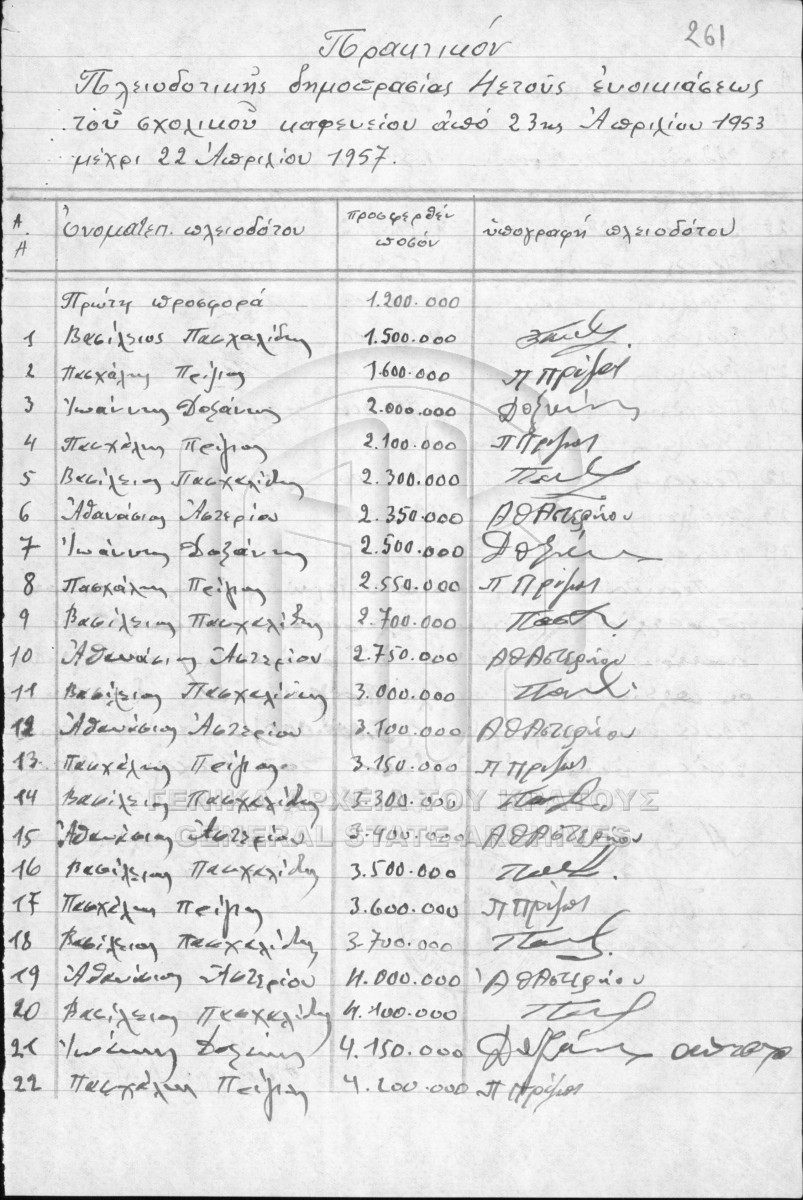 261
Πρακτικόν
Πλειοδοτικῆς δημοπρασίας 4ετοῦς ἐνοικιάσεως
τοῦ σχολικοῦ καφενείου ἀπό 23ης Ἀπριλίου 1953
μέχρι 22 Ἀπριλίου 1957.
Α/Α Ὀνοματεπ. πλειοδότου προσφερθέν ποσόν ὑπογραφή πλειοδότου
Πρώτη προσφορά 1.200.000
1 Βασίλειος Πασχαλίδης 1.500.000
2 Πασχάλης Πρίγιος 1.600.000 Π Πρίγιος
3 Ἰωάννης Δοξάνης 2.000.000 Δοξάνης
4 Πασχάλης Πρίγιος 2.100.000 Π Πρίγιος
5 Βασίλειος Πασχαλίδης 2.300.000
6 Ἀθανάσιος Ἀστερίου 2.350.000 ΑθΑστερήου
7 Ἰωάννης Δοξάνης 2.500.000 Δοξάνης
8 Πασχάλης Πρίγιος 2.550.000 Π Πρίγιος
9 Βασίλειος Πασχαλίδης 2.700.000
10 Ἀθανάσιος Ἀστερίου 2.750.000 ΑθΑστερήου
11 Βασίλειος Πασχαλίδης 3.000.000
12 Ἀθανάσιος Ἀστερίου 3.100.000 ΑθΑστερήου
13 Πασχάλης Πρίγιος 3.150.000 Π Πρίγιος
14 Βασίλειος Πασχαλίδης 3.300.000
ΓΕΝΙΚΑ ΑΡΧΕΙΑ ΤΟΥ ΚΡΑΤΟΥΣ
15 Ἀθανάσιος Ἀστερίου 3.400.000 ΑθΑστερήου
GENERAL STATE ARCHIVES
16 Βασίλειος Πασχαλίδης 3.500.000
17 Πασχάλης Πρίγιος 3.600.000 Π Πρίγιος
18 Βασίλειος Πασχαλίδης 3.700.000
19 Ἀθανάσιος Ἀστερίου 4.000.000 ΑθΑστερήου
20 Βασίλειος Πασχαλίδης 4.100.000
21 Ἰωάννης Δοξάνης 4.150.000 Δοξάνης
22 Πασχάλης Πρίγιος 4.200.000 Π Πρίγιος